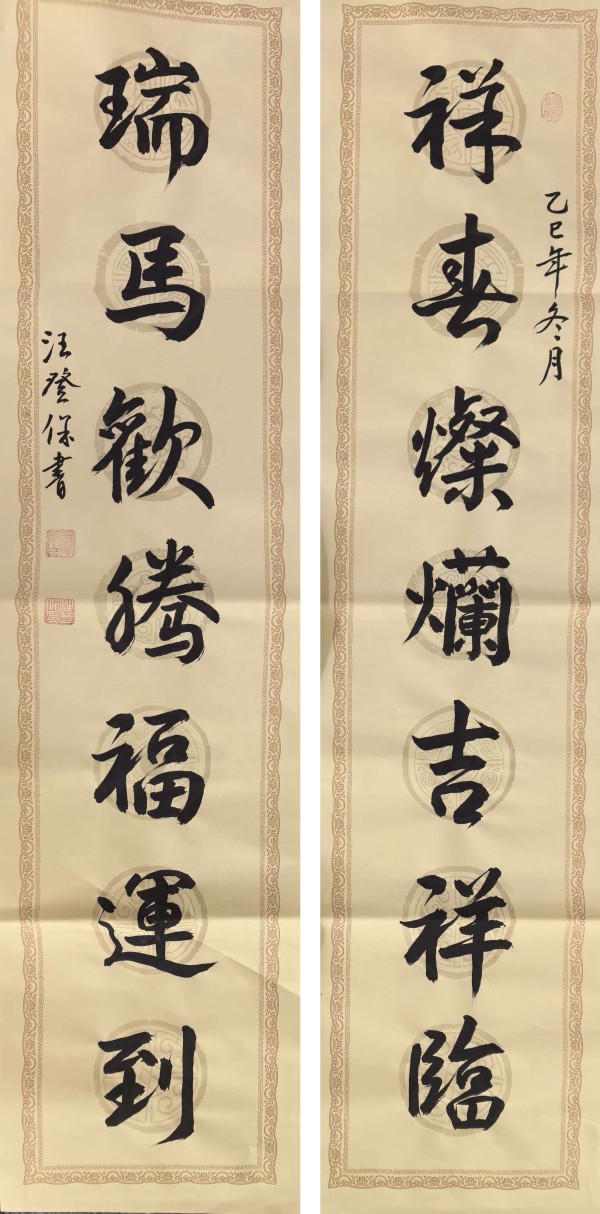 乙巳年冬月
祥春燦爛吉祥臨
瑞馬歡騰福運到
汪登保書